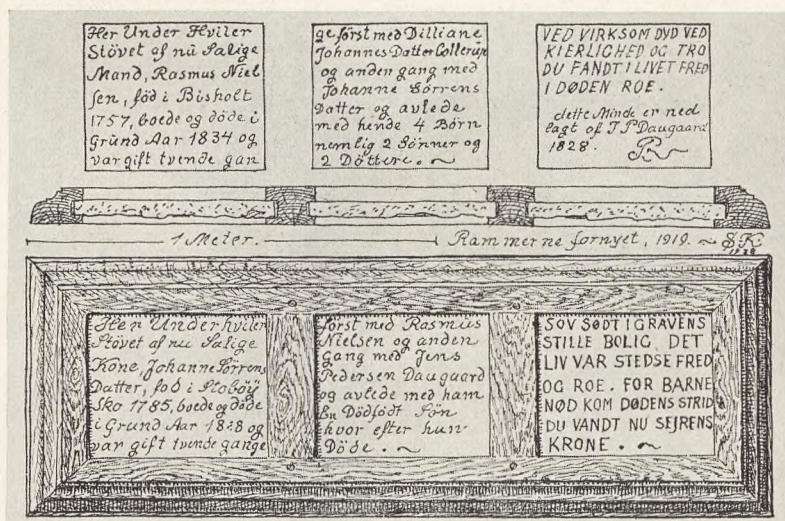 Her Under Hviler
Stövet af nu Salige
Mand, Rasmus Niel
sen, föd i Bisholt
1757, boede og döde i
Grund Aar 1834 og
var gift tvende gan
ge först med Dilliane
Johannes Datter Collerup
og anden gang med
Johanne Sörrens
Datter og avlede
med hende 4 Börn
nemlig 2 Sönner og
2 Döttere.
VED VIRKSOM DYD VED
KIERLIGHED OG TRO
DU FANDT I LIVET FRED
I DØDEN ROE.
dette Minde er ned
lagt af J P Daugaard
1828.
1 Meter.
Rammerne fornyet, 1919.
S.K.
1928
Her Underhviler
Stövet af nu Salige
Kone, Johanne Sörrens
Datter, föd i Stoböÿ
Sko 1785, boede og döde
i Grund Aar 1828 og
var gift tvende gange
först med Rasmus
Nielsen og anden
Gang med Jens
Pedersen Daugaard
og avlede med ham
En Dödfödt Sön
hvor efter hun
Döde.
SOV SØDT I GRAVENS
STILLE BOLIG, DET
LIV VAR STEDSE FRED
OG ROE. FOR BARNE
NØD KOM DØDENS STRID
DU VANDT NU SEJRENS
KRONE.